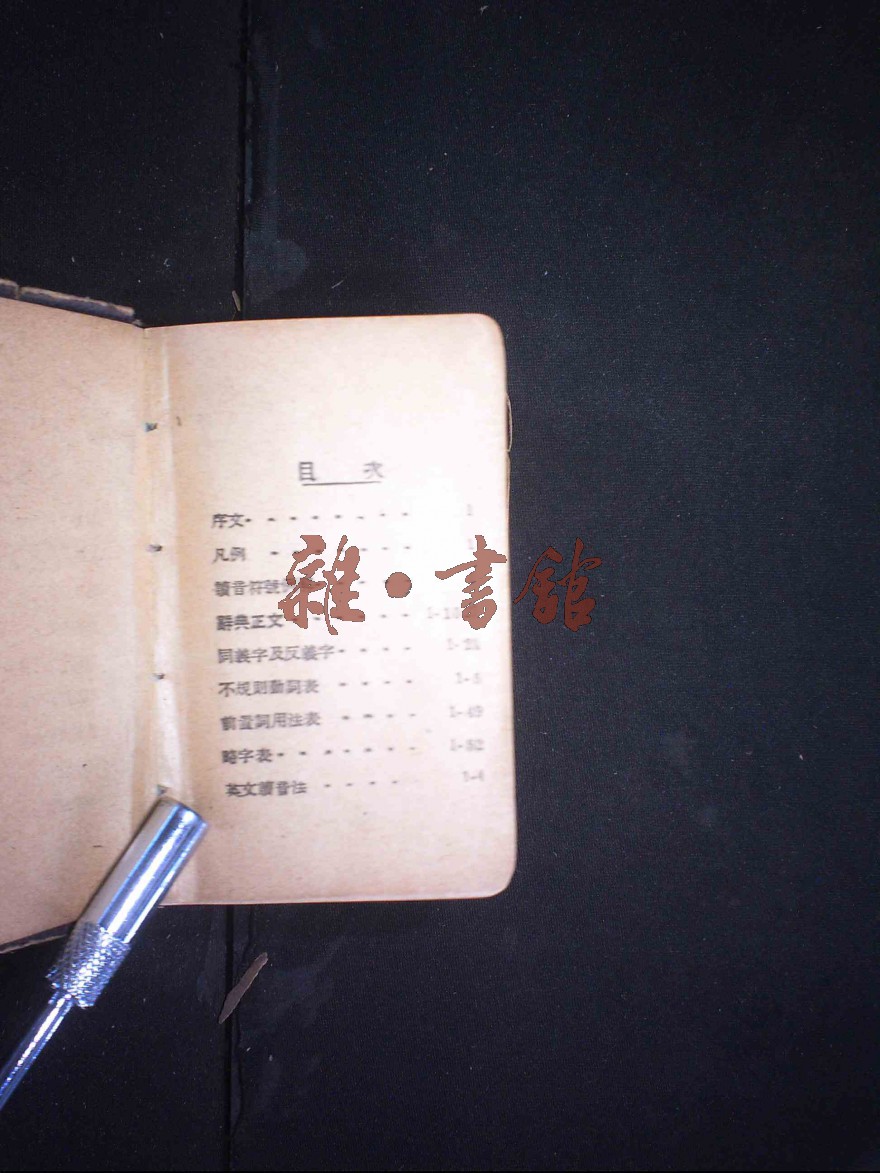 目 次
序文 1
凡例
讀音符號
辭典正文 1-10
同義字及反義字 1-21
不規則動詞表 1-8
前置詞用法表 1-49
略字表 1-52
英文讀音法 1-4
雜·書館